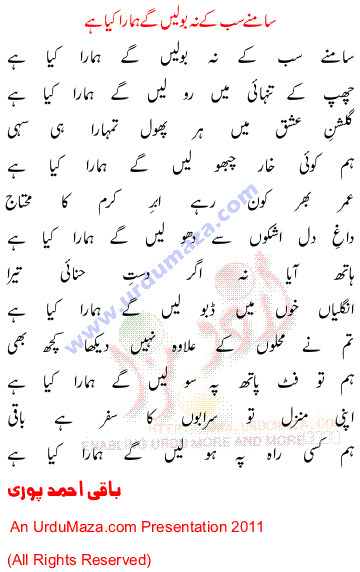 سامنے سب کے نہ بولیں گے ہمارا کیا ہے
سامنے سب کے نہ بولیں گے ہمارا کیا ہے
چھپ کے تنہائی میں رو لیں گے ہمارا کیا ہے
گلشن عشق میں ہر پھول تمہارا ہی سہی
ہم کوئی خار چبھو لیں گے ہمارا کیا ہے
عمر بھر کون رہے ابرِ کرم کا محتاج
داغ دل اشکوں سے دھو لیں گے ہمارا کیا ہے
ہاتھ آیا نہ اگر دست حنائی تیرا
انگلیاں خوں میں ڈبو لیں گے ہمارا کیا ہے
تم نے محلوں کے علاوہ نہیں دیکھا کچھ بھی
ہم تو فٹ پاتھ پہ سو لیں گے ہمارا کیا ہے
اپنی منزل تو سرابوں کا سفر ہے باقی
ہم کسی راہ پہ ہو لیں گے ہمارا کیا ہے
باقی احمد پوری
An UrduMaza.com Presentation 2011
(All Rights Reserved)
www.urdumaza.com
ENABLING URDU MORE AND MORE